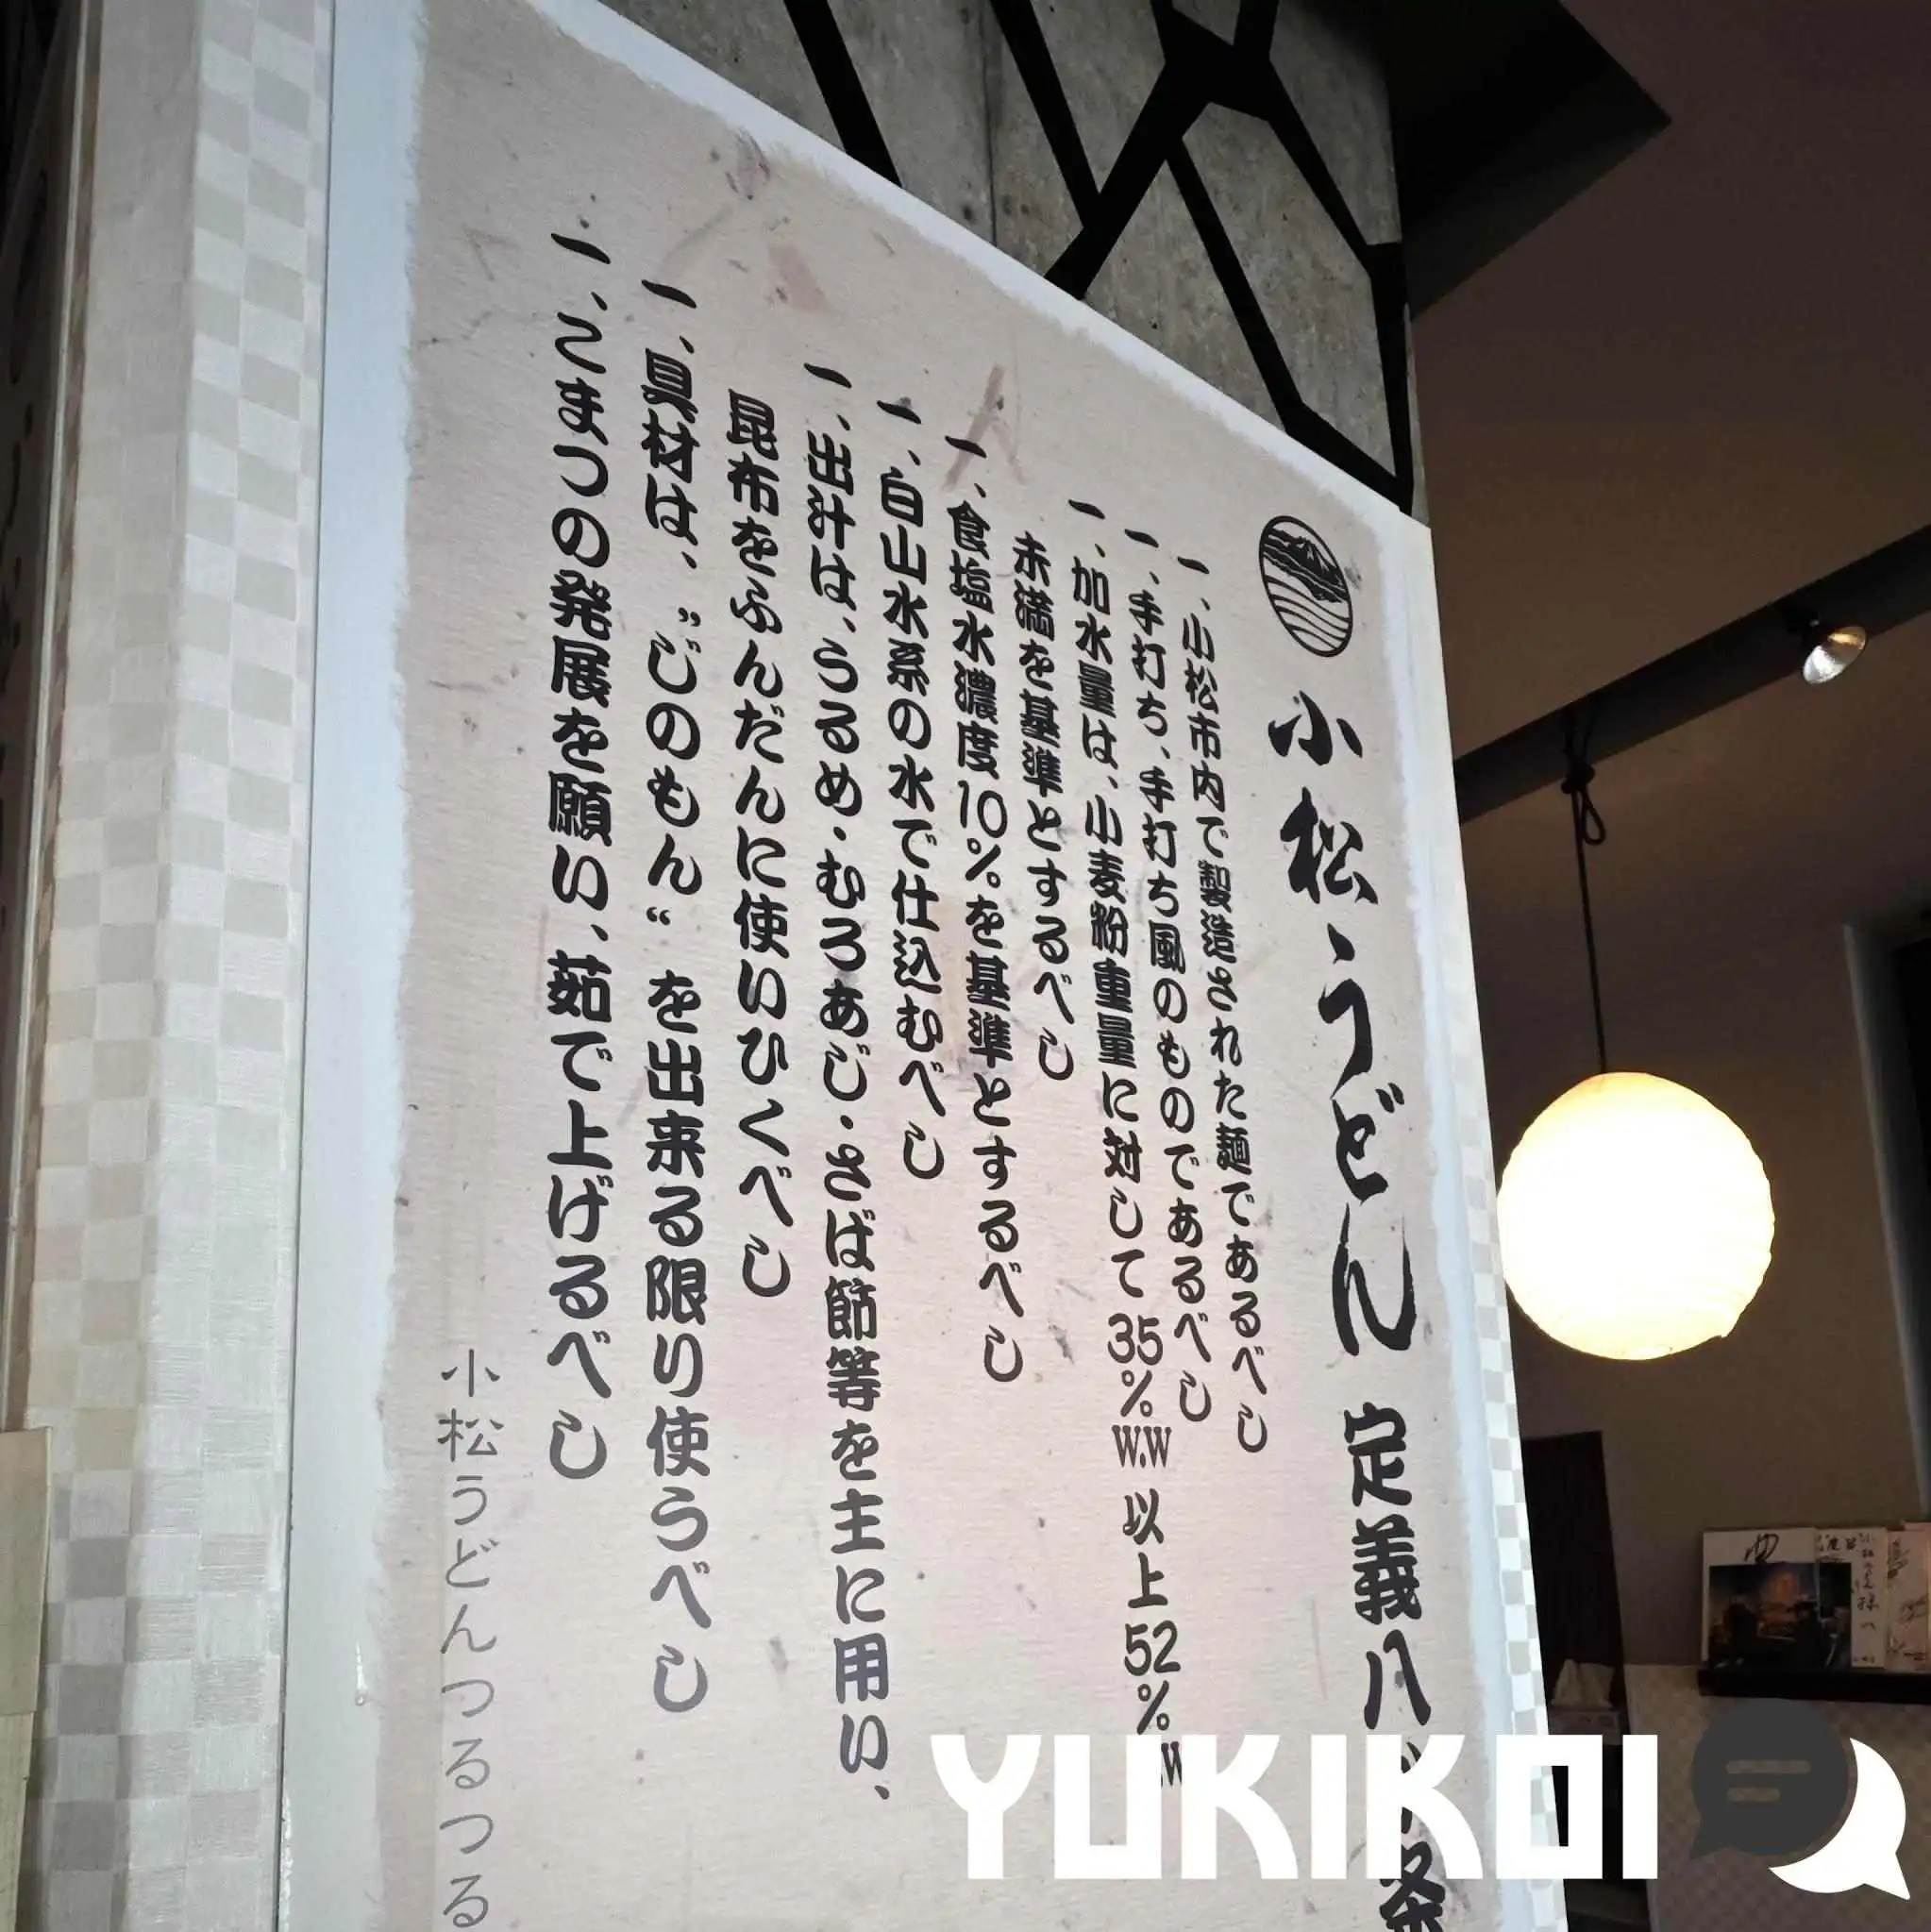 小松うどん 定義八ヶ条
一、小松市内で製造された麺であるべし
一、手打ち、手打ち風のものであるべし
一、加水量は、小麦粉重量に対して35%W.W 以上52%W
未満を基準とするべし
一、食塩水濃度10%を基準とするべし
一、白山水系の水で仕込むべし
一、出汁は、うるめ・むろあじ・さば節等を主に用い、
昆布をふんだんに使いひくべし
一、具材は、"じのもん"を出来る限り使うべし
一、こまつの発展を願い、茹で上げるべし
小松うどんつるつる
YUKIKOI